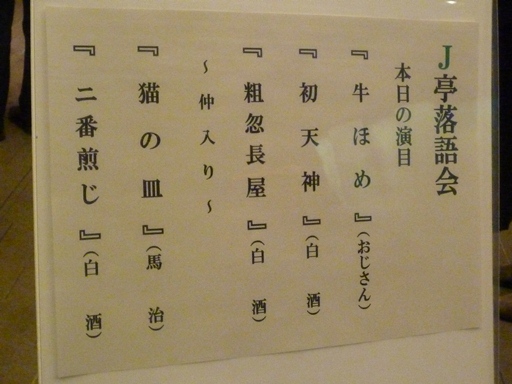 J亭落語会
本日の演目
『牛ほめ』（おじさん）
『初天神』（白酒）
『粗忽長屋』（白酒）
～仲入り～
『猫の皿』（馬治）
『二番煎じ』（白酒）